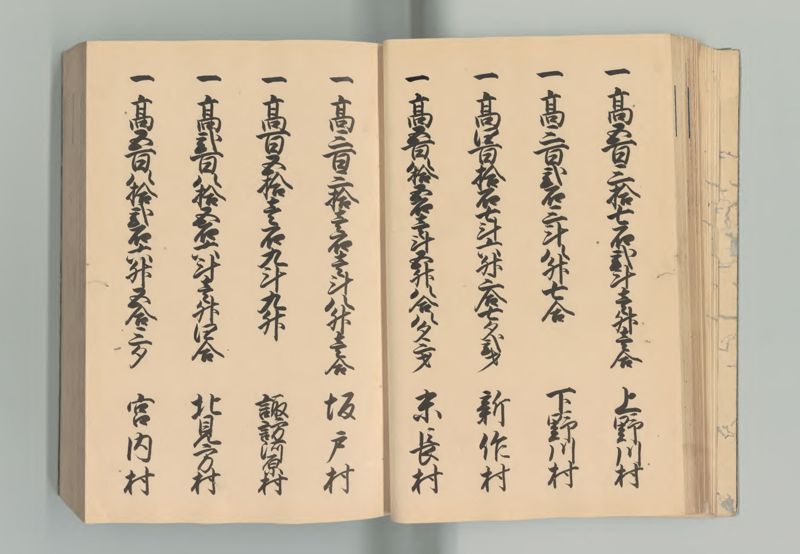 一高五百三拾七石弐斗壱升壱合 上野川村
一高三百弐石三斗八升七合 下野川村
一高四百拾石七斗六升六合七夕弐才 新作村
一高五百八拾五石壱斗五升八合八夕 末長村
一高三百三拾壱石壱斗八升壱合 坂戸村
一高百五拾壱石九斗九升 諏訪河原村
一高弐百八拾五石六斗壱升四合 北見方村
一高五百八拾弐石六升五合三夕 宮内村